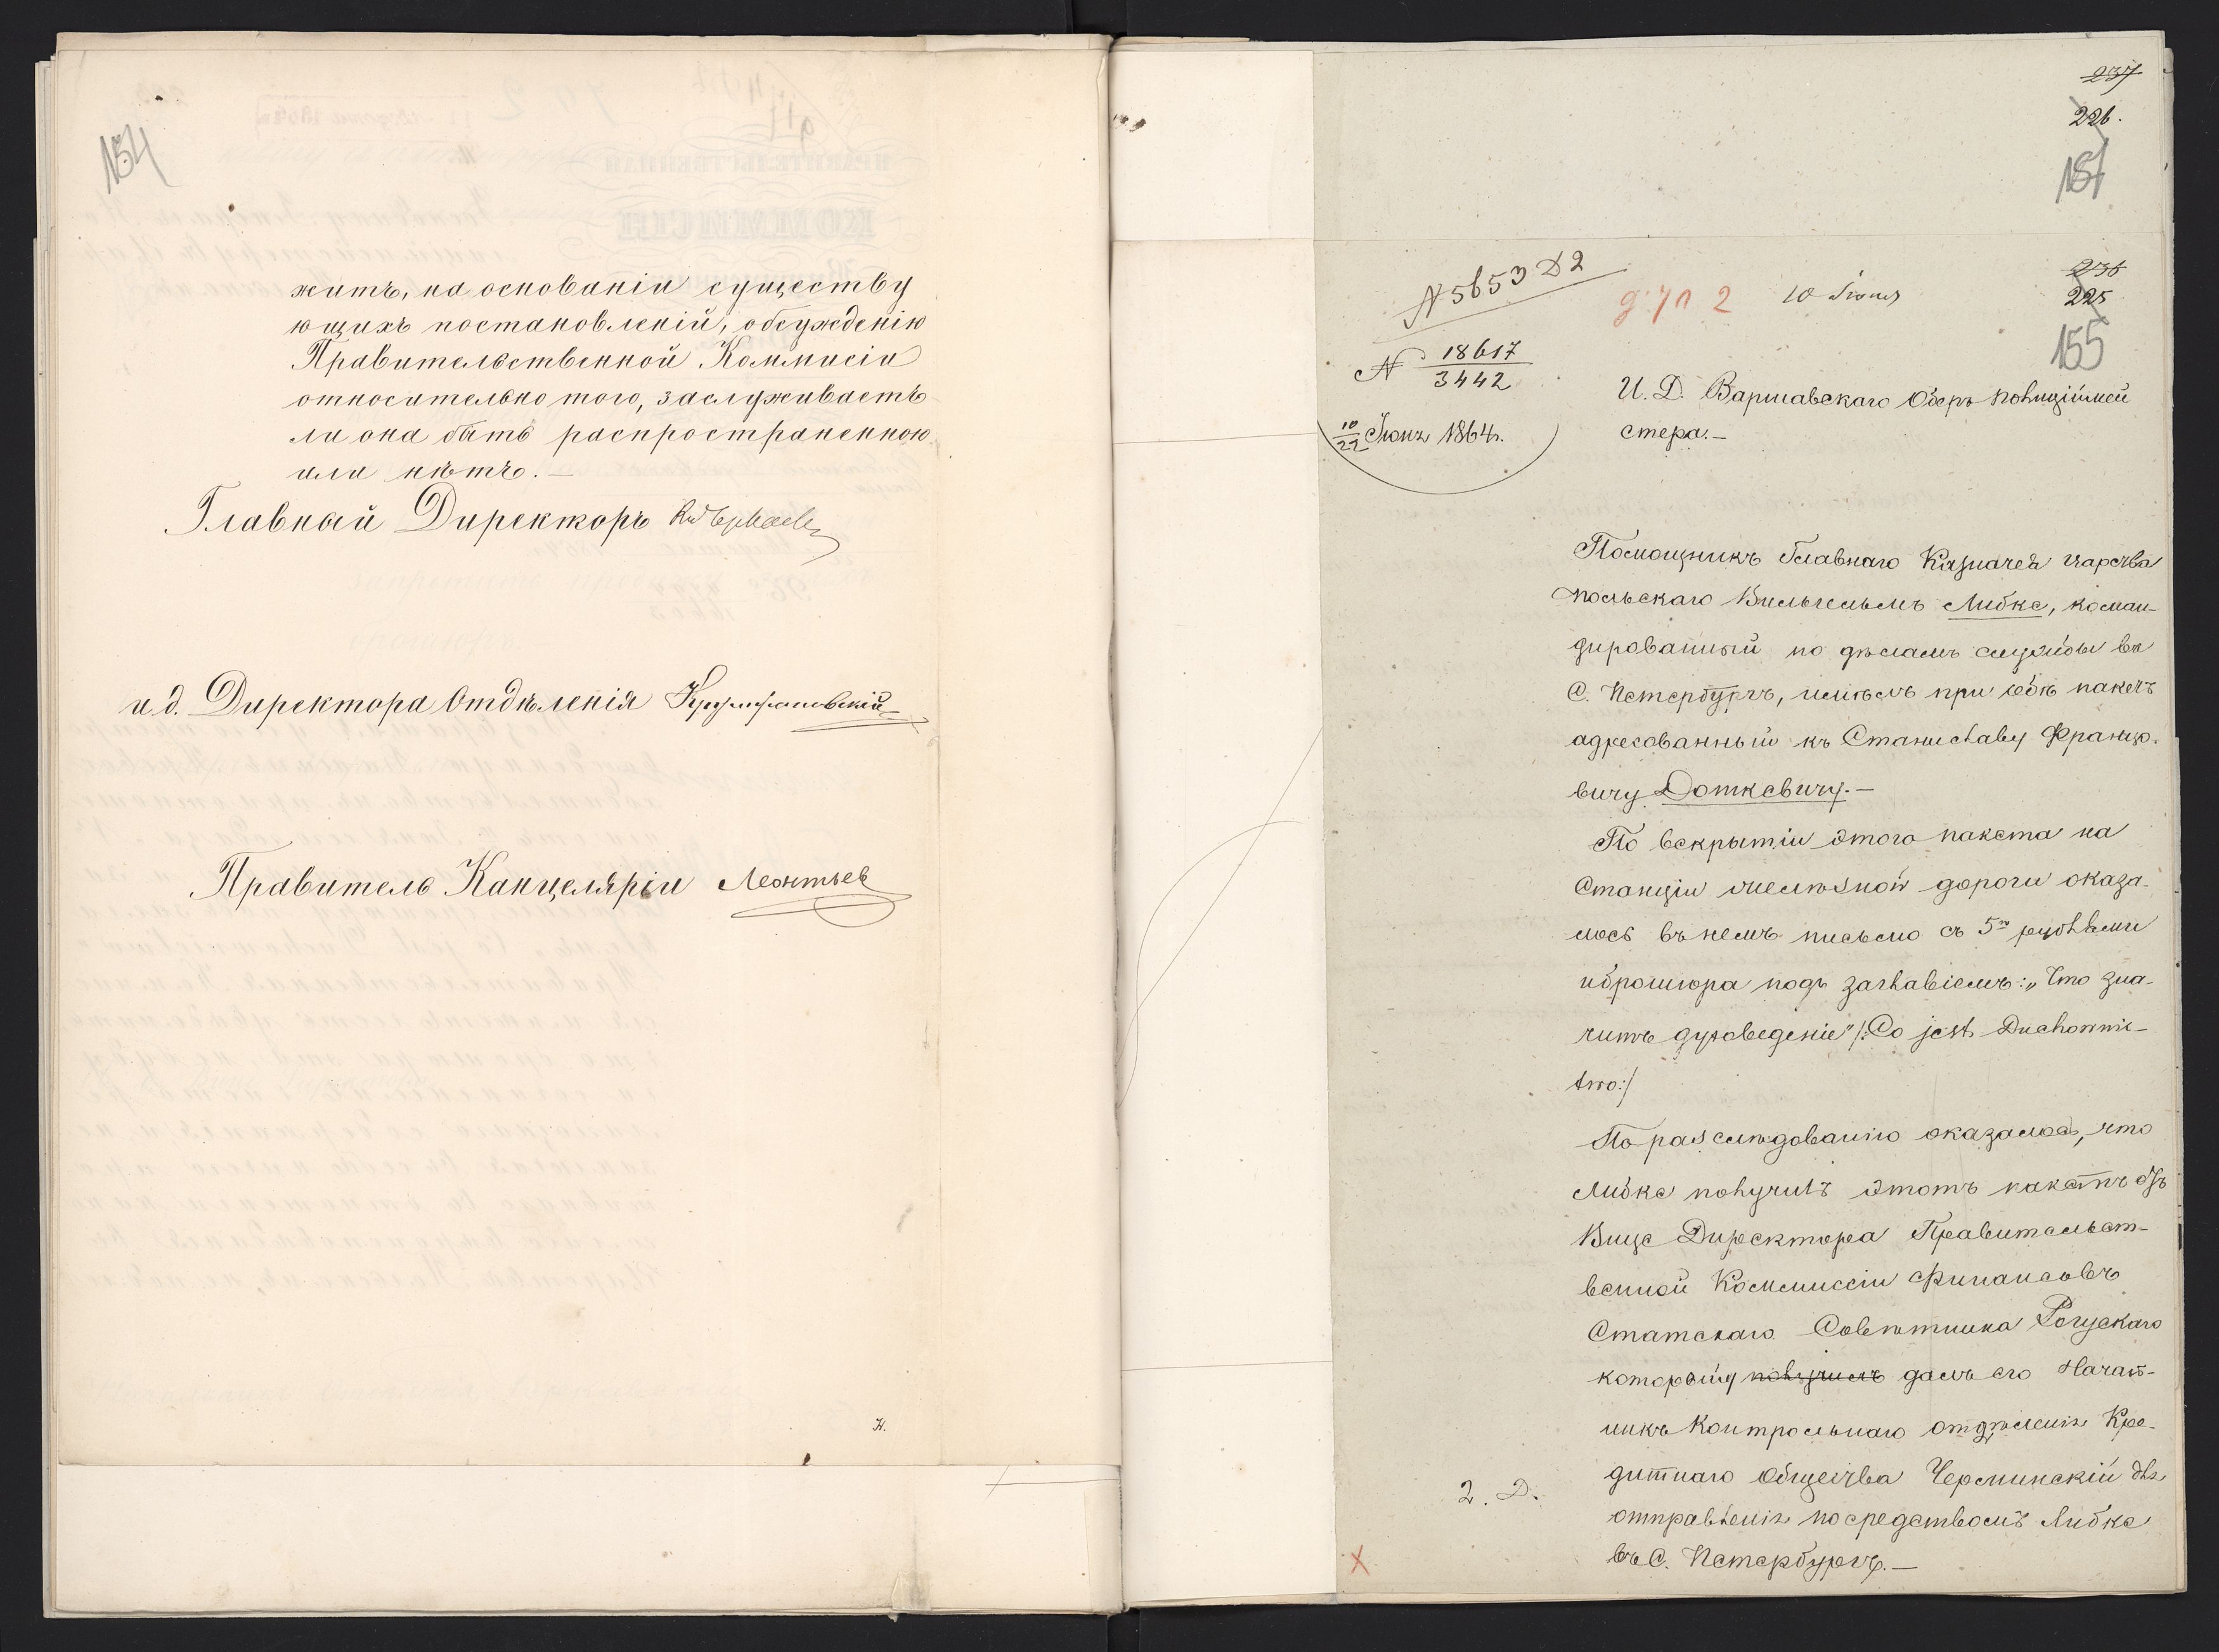 154
житъ, на основаніи существу
ющихъ постановленій, обсужденію
Правительственной Коммисіи
относительно того, заслуживаетъ
ли она быть распространенною
или нѣтъ.—
Главный Директоръ
и д. Директора Отдѣленія
Правитель Канцеляріи Леонтьев
Н.
237
226.
N 5653 D 2
10 Іюня
236
225
155
N 18617
3442
10/22 Іюня 1864 г.
И. Д. Варшавскаго Оберъ Полицiймей
стера.—
Помощникъ Главнаго Казначея Царства
Польскаго Вильгельмъ Либке, коман-
дированный по дѣламъ службы въ
С. Петербургъ, имѣлъ при себѣ пакетъ
адресованный къ Станиславу Францо.
вичу Доткевичу.—
По вскрытіи этого пакета на
Станціи желѣзной дороги оказа-
лось въ немъ письмо съ 5ю рублями
и брошюра подъ заглавіемъ: „Что зна-
читъ духоведеніе" /:Co jest Duchowni-
two:/
По разслѣдованію оказалось, что
Либке получилъ этотъ пакетъ отъ
Вице Директора Правительст-
венной Коммиссіи Финансовъ
Статскаго Совѣтника
которому получилъ далъ его Начальн-
никъ Контрольнаго отдѣленія Кре-
дитнаго Общества Черминскій для
2. D.
отправленія посредствомъ Либке
въ С. Петербургъ.—